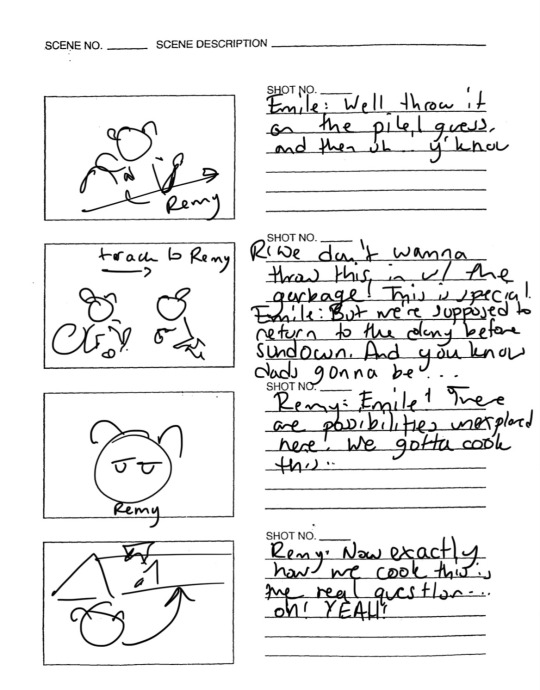 SCENE NO. SCENE DESCRIPTION
SHOT NO.
Emile: Well throw it
on the pile, I guess,
and then uh... y'know
Remy
track to Remy
SHOT NO.
R: We don't wanna
throw this in w/ the
garbage! This is special.
Emile: But we're supposed to
return to the colony before
sundown. And you know
dads gonna be...
SHOT NO.
Remy: Emile! There
are possibilities unexplored
here! We gotta cook
this...
Remy
SHOT NO.
Remy: Now exactly
how we cook this is
the real question...
oh! YEAH!